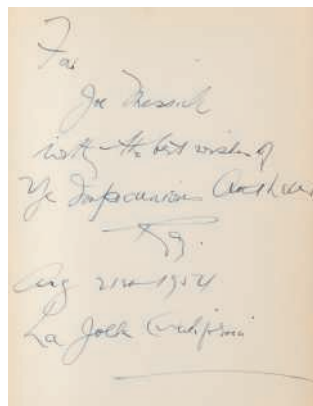 For
Joe Messick
with the best wishes of
Ye Impecunious Author
Ray.
Aug 21st 1954
La Jolla California